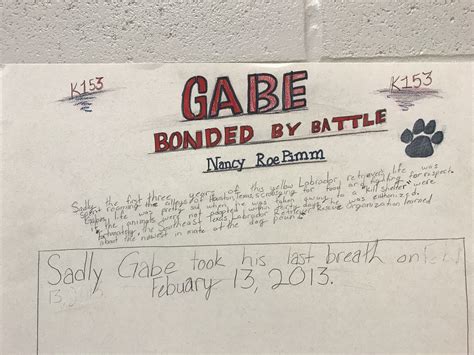 K153
K153
GABE
BONDED BY BATTLE
Nancy Roe Pimm
Sadly, the first three years of this yellow Labrador retriever's life was
spent roaming the alleys of Houston, Texas, scrounging for food and fighting for respect.
Gabe's life was pretty when he was taken away to a "kill shelter" were
if the animals were not adopted within thirty days, he was
Fortunately, the Southeast Texas Labrador Retriever Rescue Organization learned
about the newest inmate at the dog pound.
Sadly Gabe took his last breath on
Febuary 13, 2013.